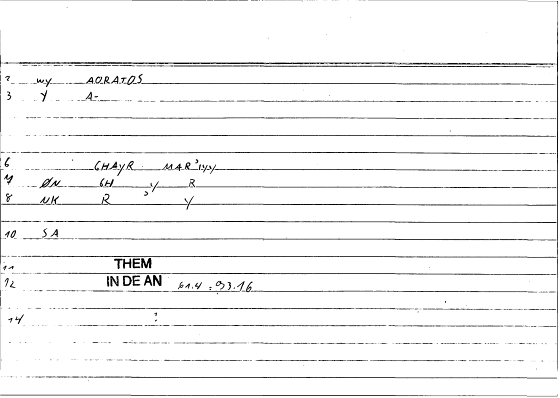 2 wy AORATOS
3 Y A-
6 GHAYR MAR'iyy
7 ØN GH 'Y R
8 NK R Y
10 SA
11 THEM
12 IN DE AN 61.4 : 93.16
14 :